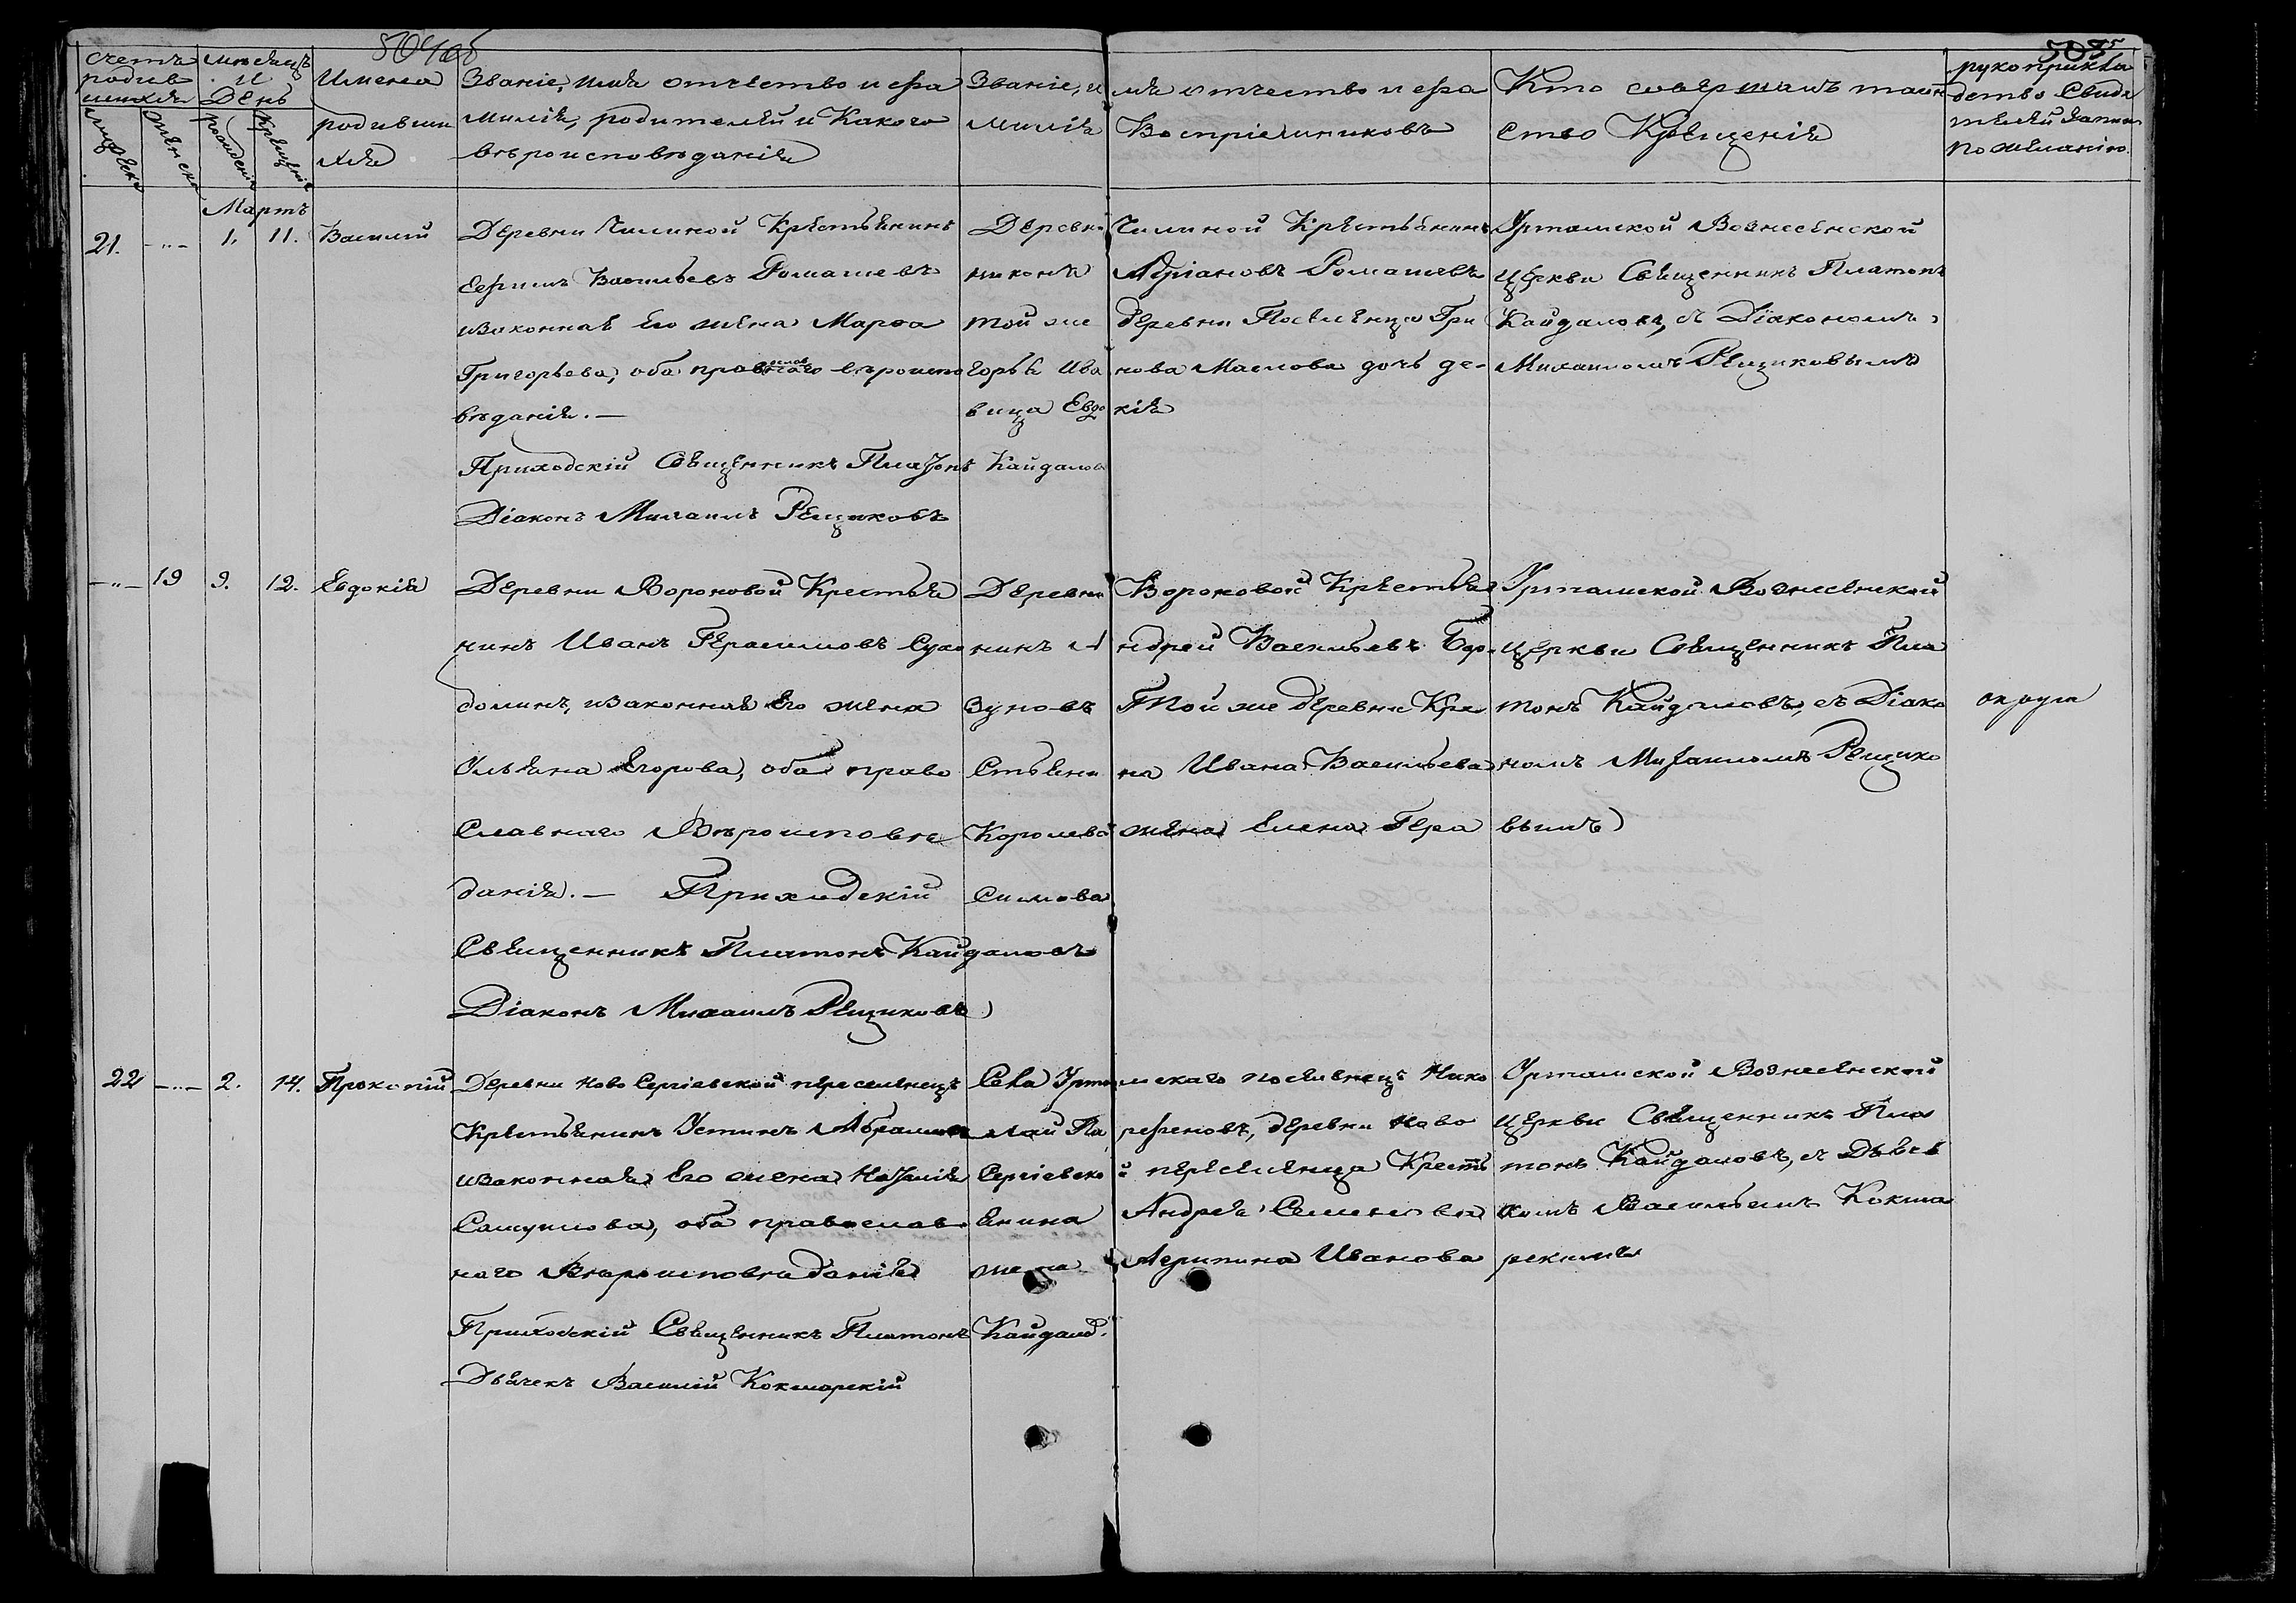 504об
505
Счетъ родив шихся
Мѣсяцъ и День
Имена родивши хся
Званіе, имя отчество и фа милія, родителей и Какого вѣроисповѣданія
Званіе, имя отчество и фа милія Воспріемниковъ
Кто совершалъ таин ство Крещенія
рукоприкла дство Свидѣ телей записи по желанію.
мужска
женска
рожденія
Крещенія
Мартъ
21. -"- 1. 11. Василій
Деревни Чилиной Крестьянинъ
Ефимъ Васильевъ Ромашевъ
изаконная Его жена Марѳа
Григорьева, оба православнаго вѣроиспо
вѣданія. —
Приходскій Священникъ Платонъ Кайдалов
Діаконъ Михаилъ Рещиковъ
Деревни Чилиной Крестьянинъ
Никонъ Адріановъ Ромашевъ
той же деревни Поселенца Гри
горья Ива нова Маслова дочь дѣ-
вица Евдо кія
Урташской Вознесенской
Церкви Священникъ Платонъ
Кайдаловъ, съ Діакономъ
Михаиломъ Рещиковымъ
-"- 19 9. 12. Евдокія
Деревни Вороновой Крестья
нинъ Иванъ Герасимовъ Сухо
долинъ, изаконная Его жена
Ульяна Егорова, оба право
Славнаго Вѣроисповѣ
данія. — Приходскій
Священникъ Платонъ Кайдаловъ
Діаконъ Михаилъ Рещиковъ
Деревни Вороновой Крестья
нинъ Андрей Васильевъ
Той же деревни Кре
Стьяни на Ивана Васильева
Королева жена Елена Гера
симова
Урташской Вознесенской
Церкви Священникъ Пла
тонъ Кайдаловъ, съ Діако
номъ Михаиломъ Рещико
вымъ
22 -"- 2. 14. Прокопій
Деревни Ново Сергіевской переселенецъ
Крестьянинъ Устинъ
изаконная Его жена Наталія
Самуилова, оба православ
наго Вѣроисповѣданія
Приходскій Священникъ Платонъ Кайдалов.
Дьячекъ Василій Кокшарскій
Села Урта мскаго поселенецъ Нико
лай Па рфеновъ, деревни Ново
Сергіевско й переселенца Кресть
янина Андрея Семенова
жена Агрипина Иванова
Урташской Вознесенской
Церкви Священникъ Пла
тонъ Кайдаловъ, съ Дьяч
комъ Васильемъ Кокша
рскимъ